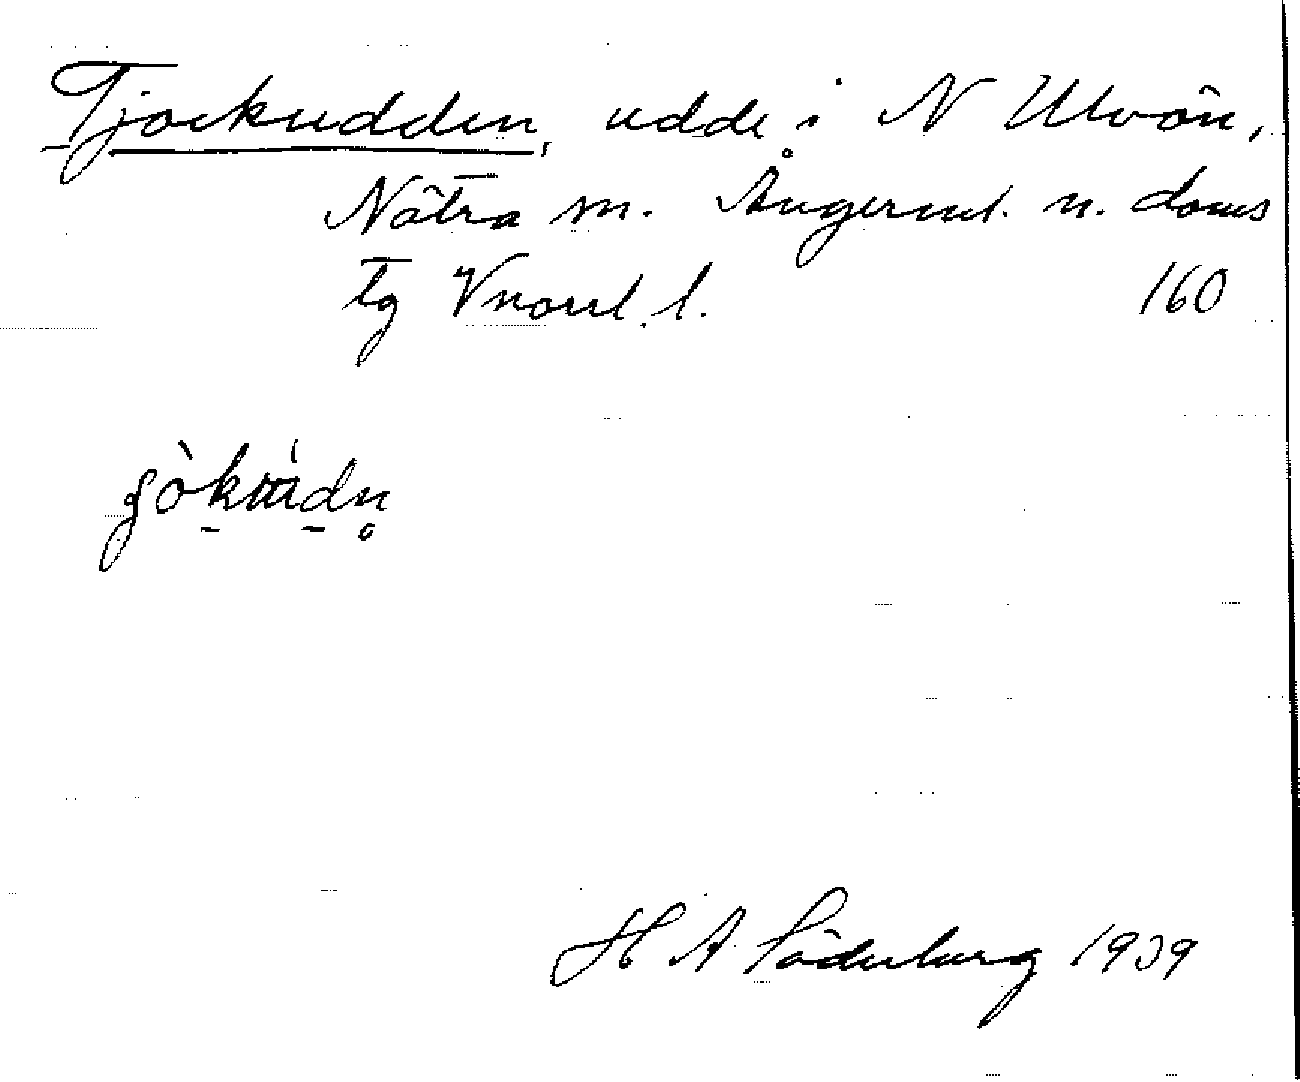 Tjockudden, udde i N Ulvön,
Nätra sn. Ångerml. n. doms
tg Vnorrl. l. 160
H A Söderberg 1939